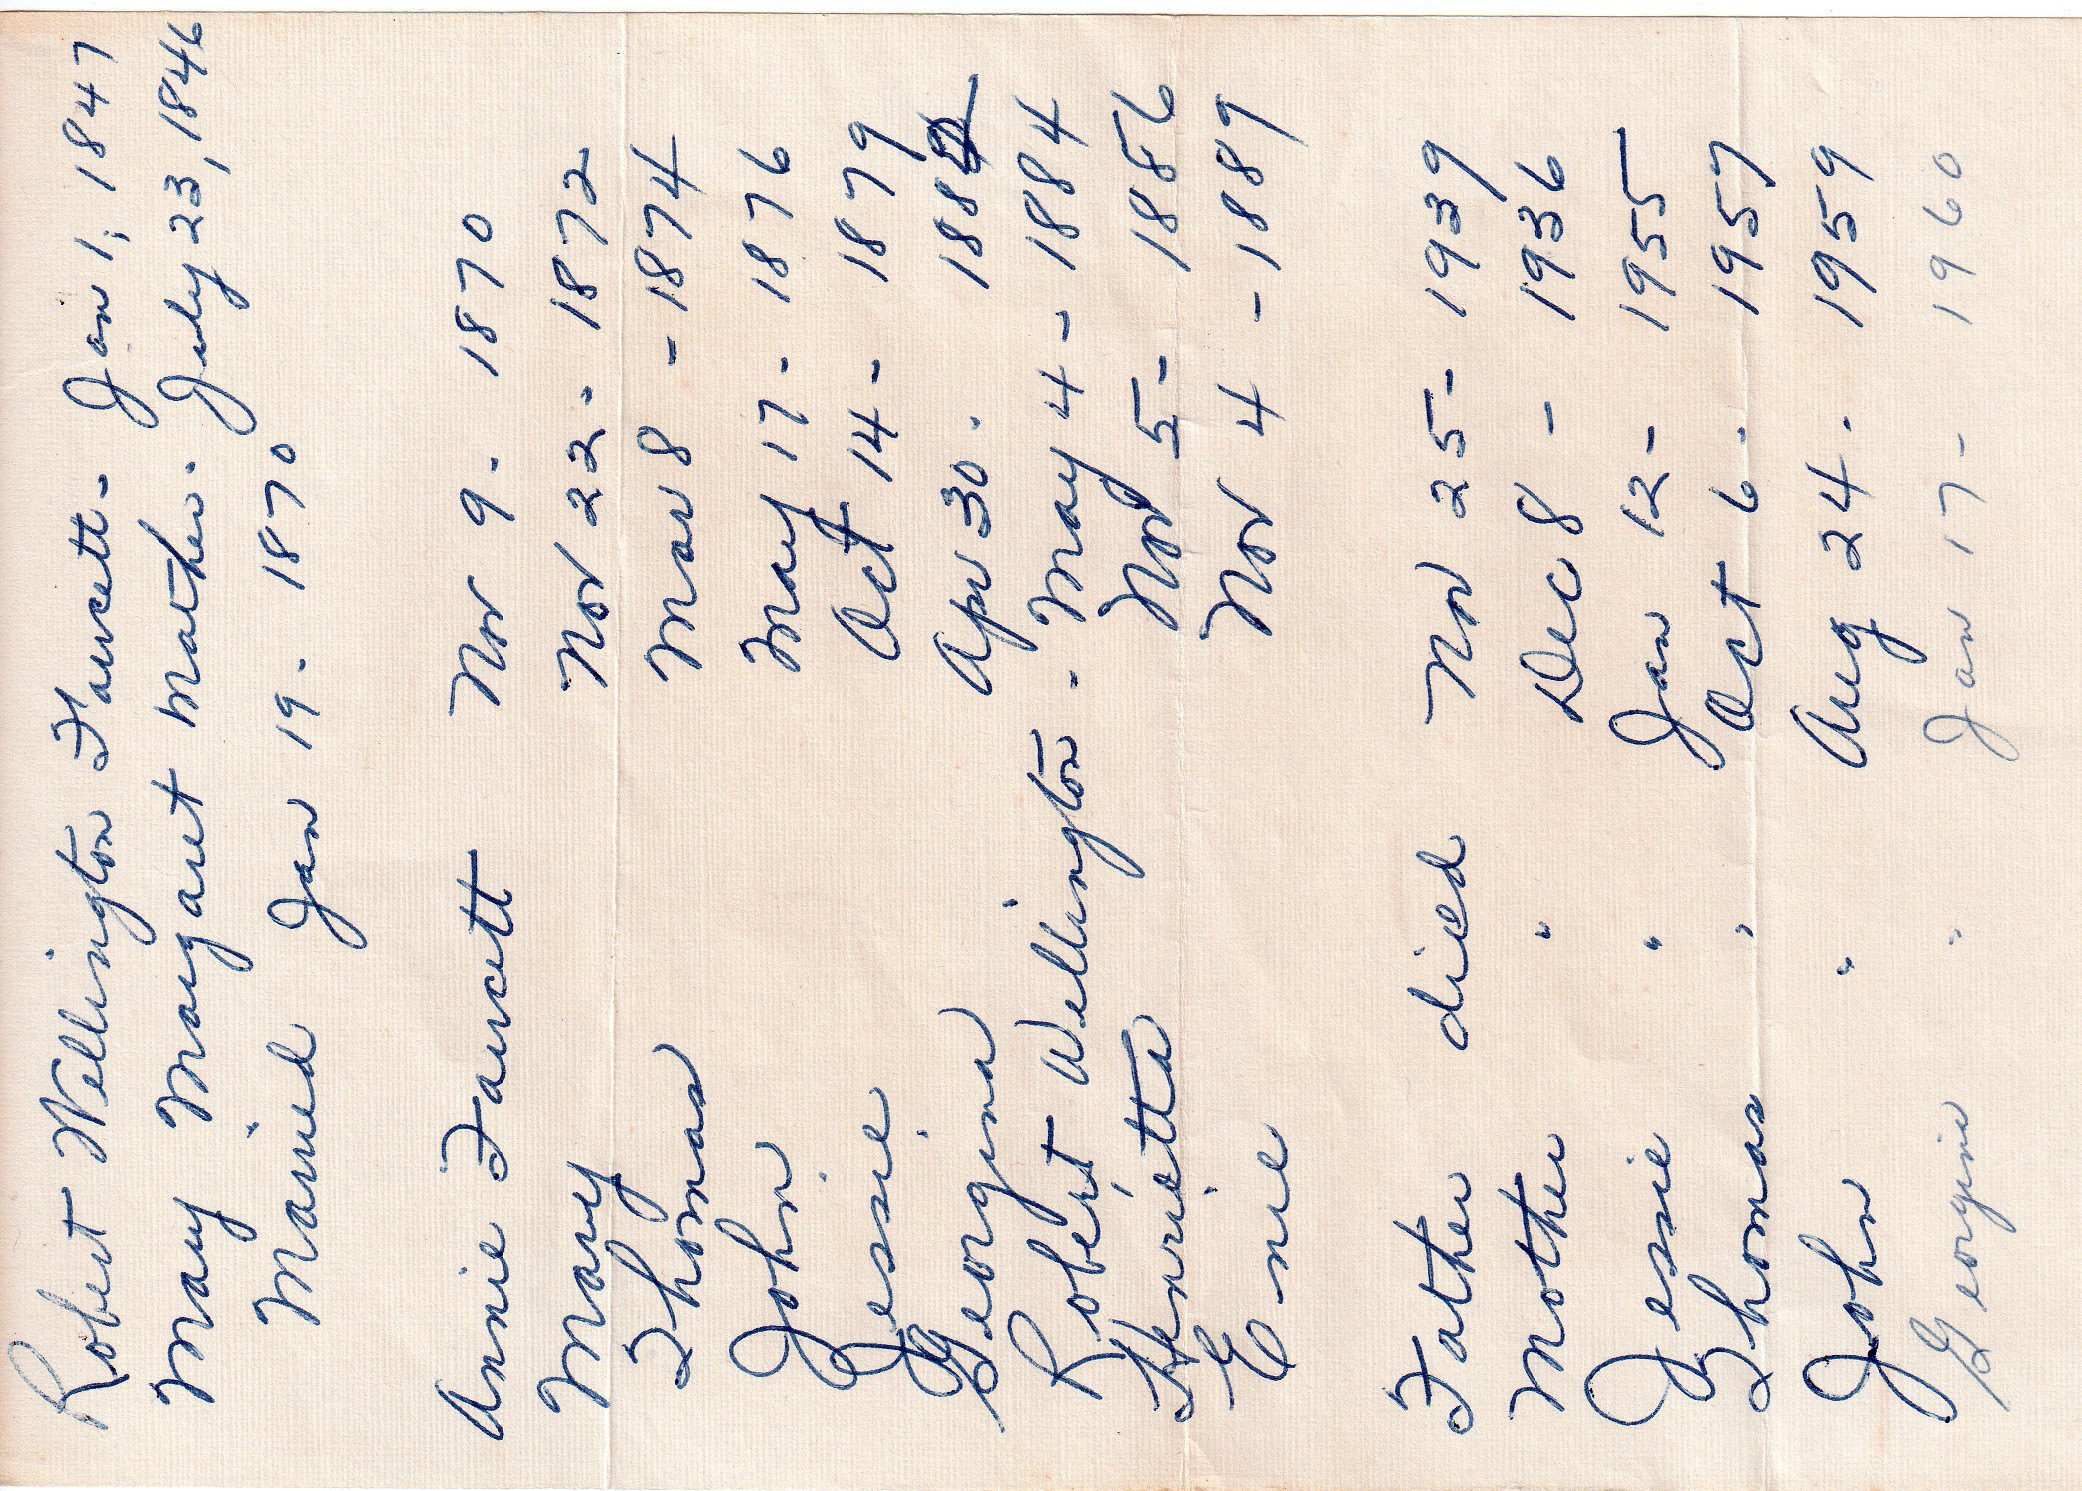 Robert Wellington Fawcett - Jan 1, 1847
Mary Margaret Mather. July 23, 1846
Married Jan 19 - 1870
Annie Fawcett Nov 9 - 1870
Mary Nov 22 - 1872
Thomas Mar 8 - 1874
John May 17 - 1876
Jessie Oct 14 - 1879
Georgina Apr 30 - 188
Robert Wellington - May 4 - 1884
Henrietta Nov 5 - 1886
Enie Nov 4 - 1889
Father died Nov 25 - 1939
Mother " Dec 8 - 1936
Jessie " Jan 12 - 1955
Thomas " Oct 6 - 1957
John " Aug 24 - 1959
Georgine " Jan 17 - 1960